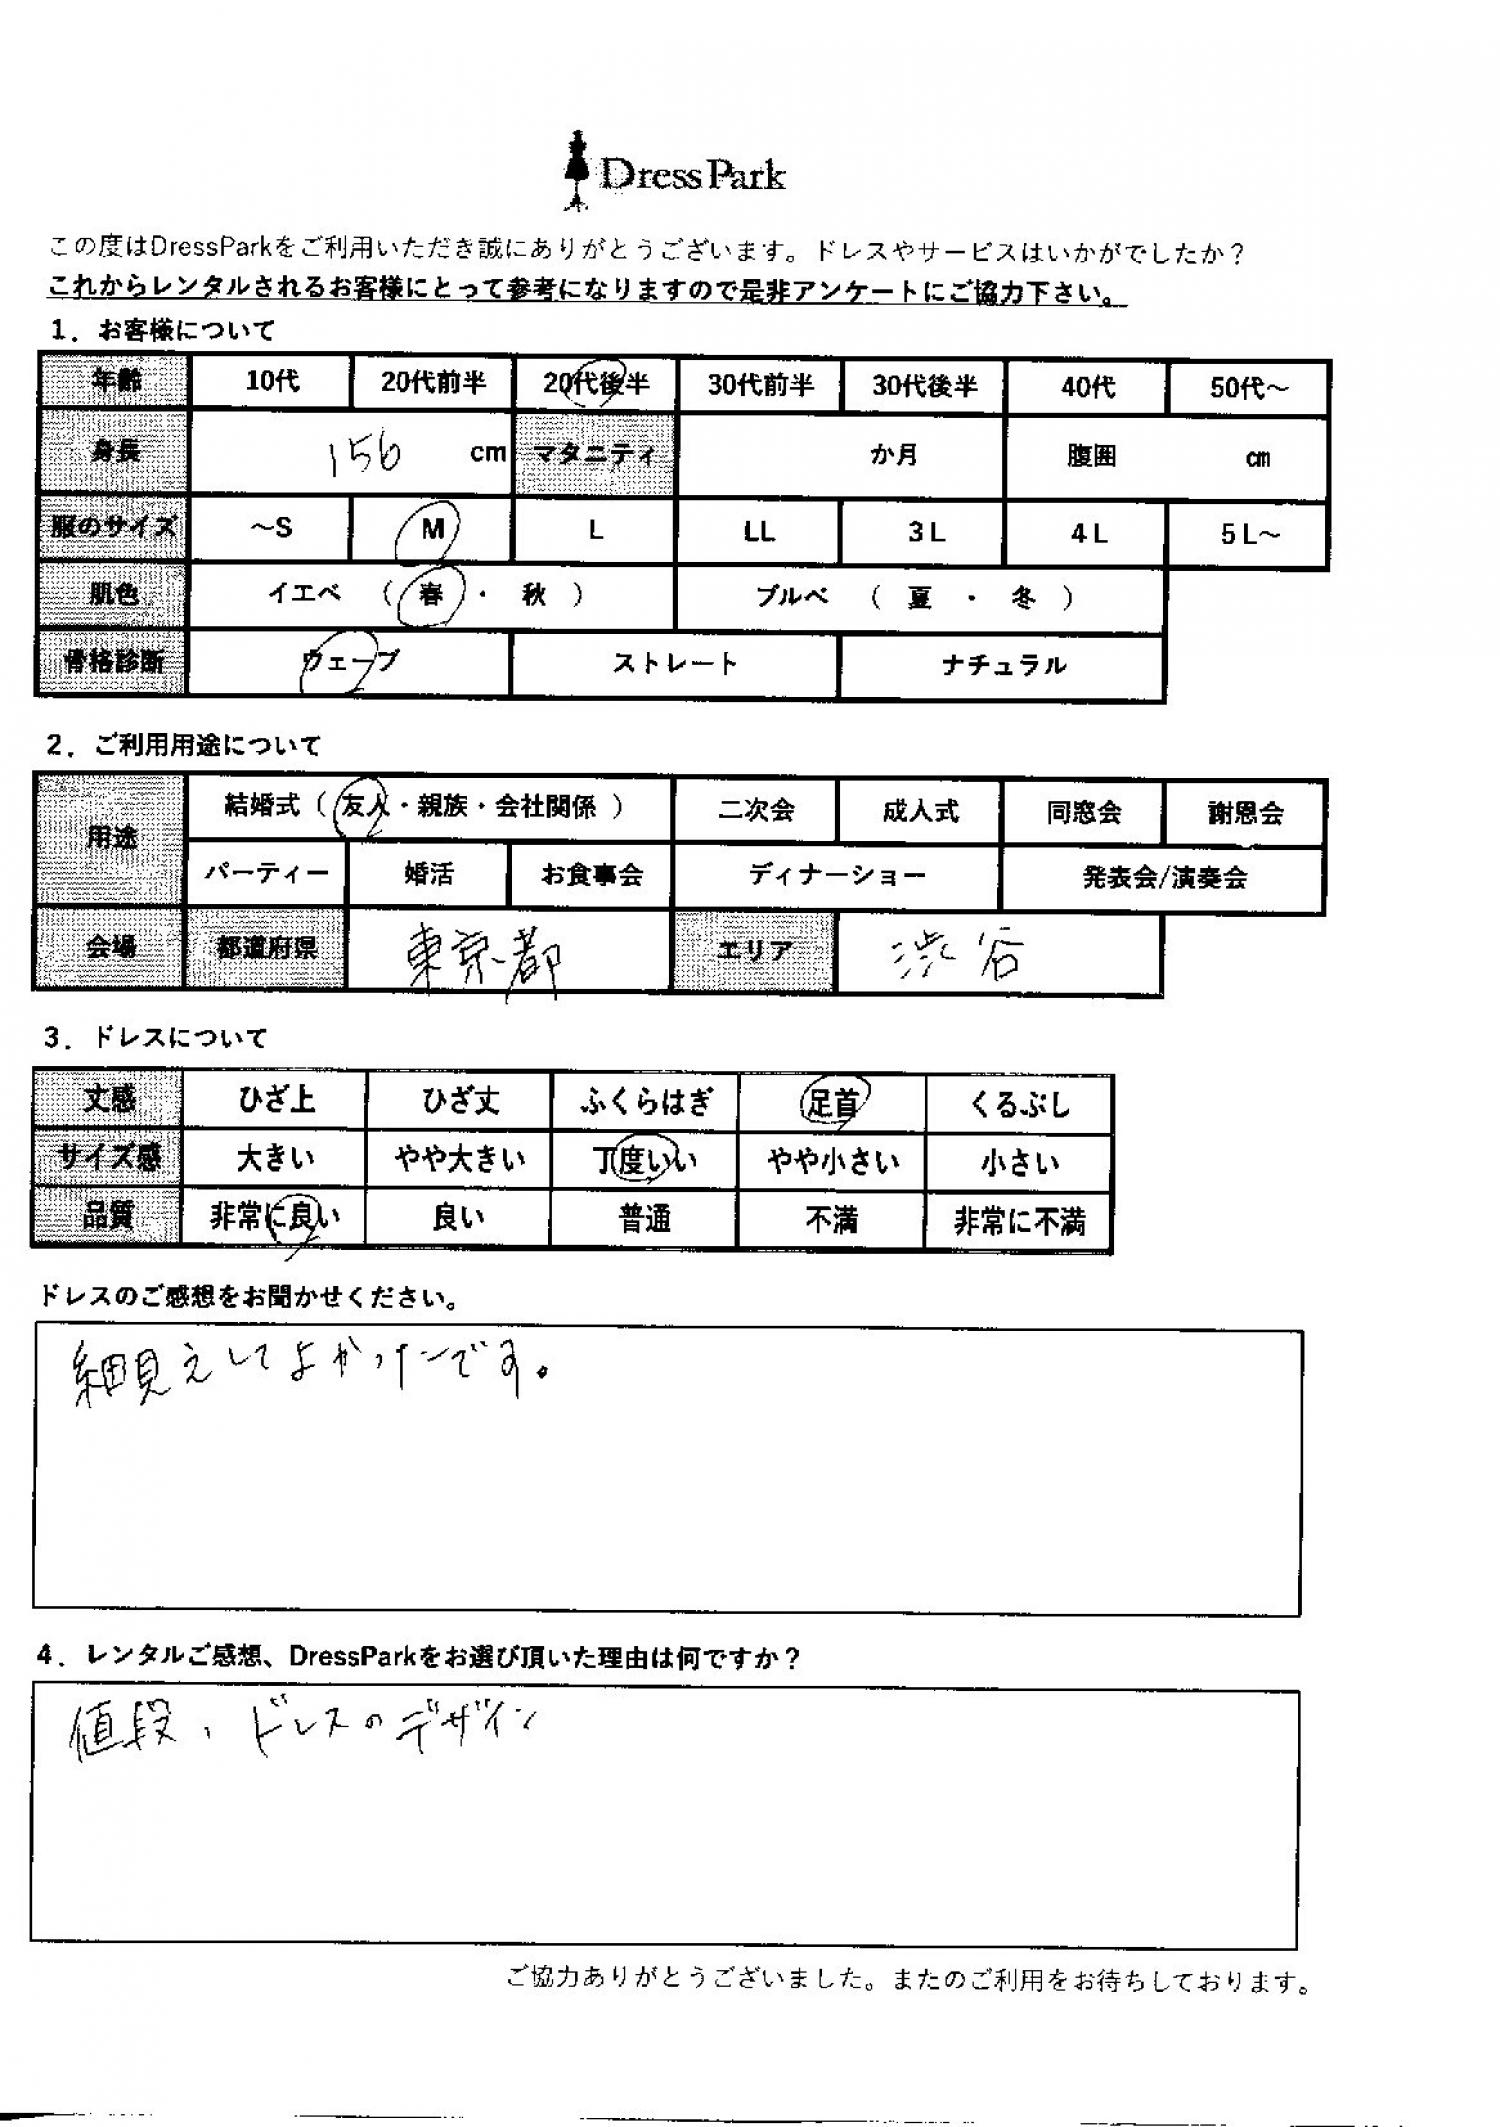 DressPark
この度はDressParkをご利用いただき誠にありがとうございます。ドレスやサービスはいかがでしたか？
これからレンタルされるお客様にとって参考になりますので是非アンケートにご協力下さい。
1．お客様について
年齢 10代 20代前半 20代後半 30代前半 30代後半 40代 50代～
身長 156 cm マタニティ か月 腹囲 ㎝
服のサイズ ～S M L LL 3L 4L 5L～
肌色 イエベ （ 春 ・ 秋 ） ブルベ （ 夏 ・ 冬 ）
骨格診断 ウェーブ ストレート ナチュラル
2．ご利用用途について
用途 結婚式（ 友人・親族・会社関係 ） 二次会 成人式 同窓会 謝恩会
パーティー 婚活 お食事会 ディナーショー 発表会/演奏会
会場 都道府県 東京都 エリア 渋谷
3．ドレスについて
丈感 ひざ上 ひざ丈 ふくらはぎ 足首 くるぶし
サイズ感 大きい やや大きい 丁度いい やや小さい 小さい
品質 非常に良い 良い 普通 不満 非常に不満
ドレスのご感想をお聞かせください。
細見えしてよかったです。
4．レンタルご感想、DressParkをお選び頂いた理由は何ですか？
値段、ドレスのデザイン
ご協力ありがとうございました。またのご利用をお待ちしております。